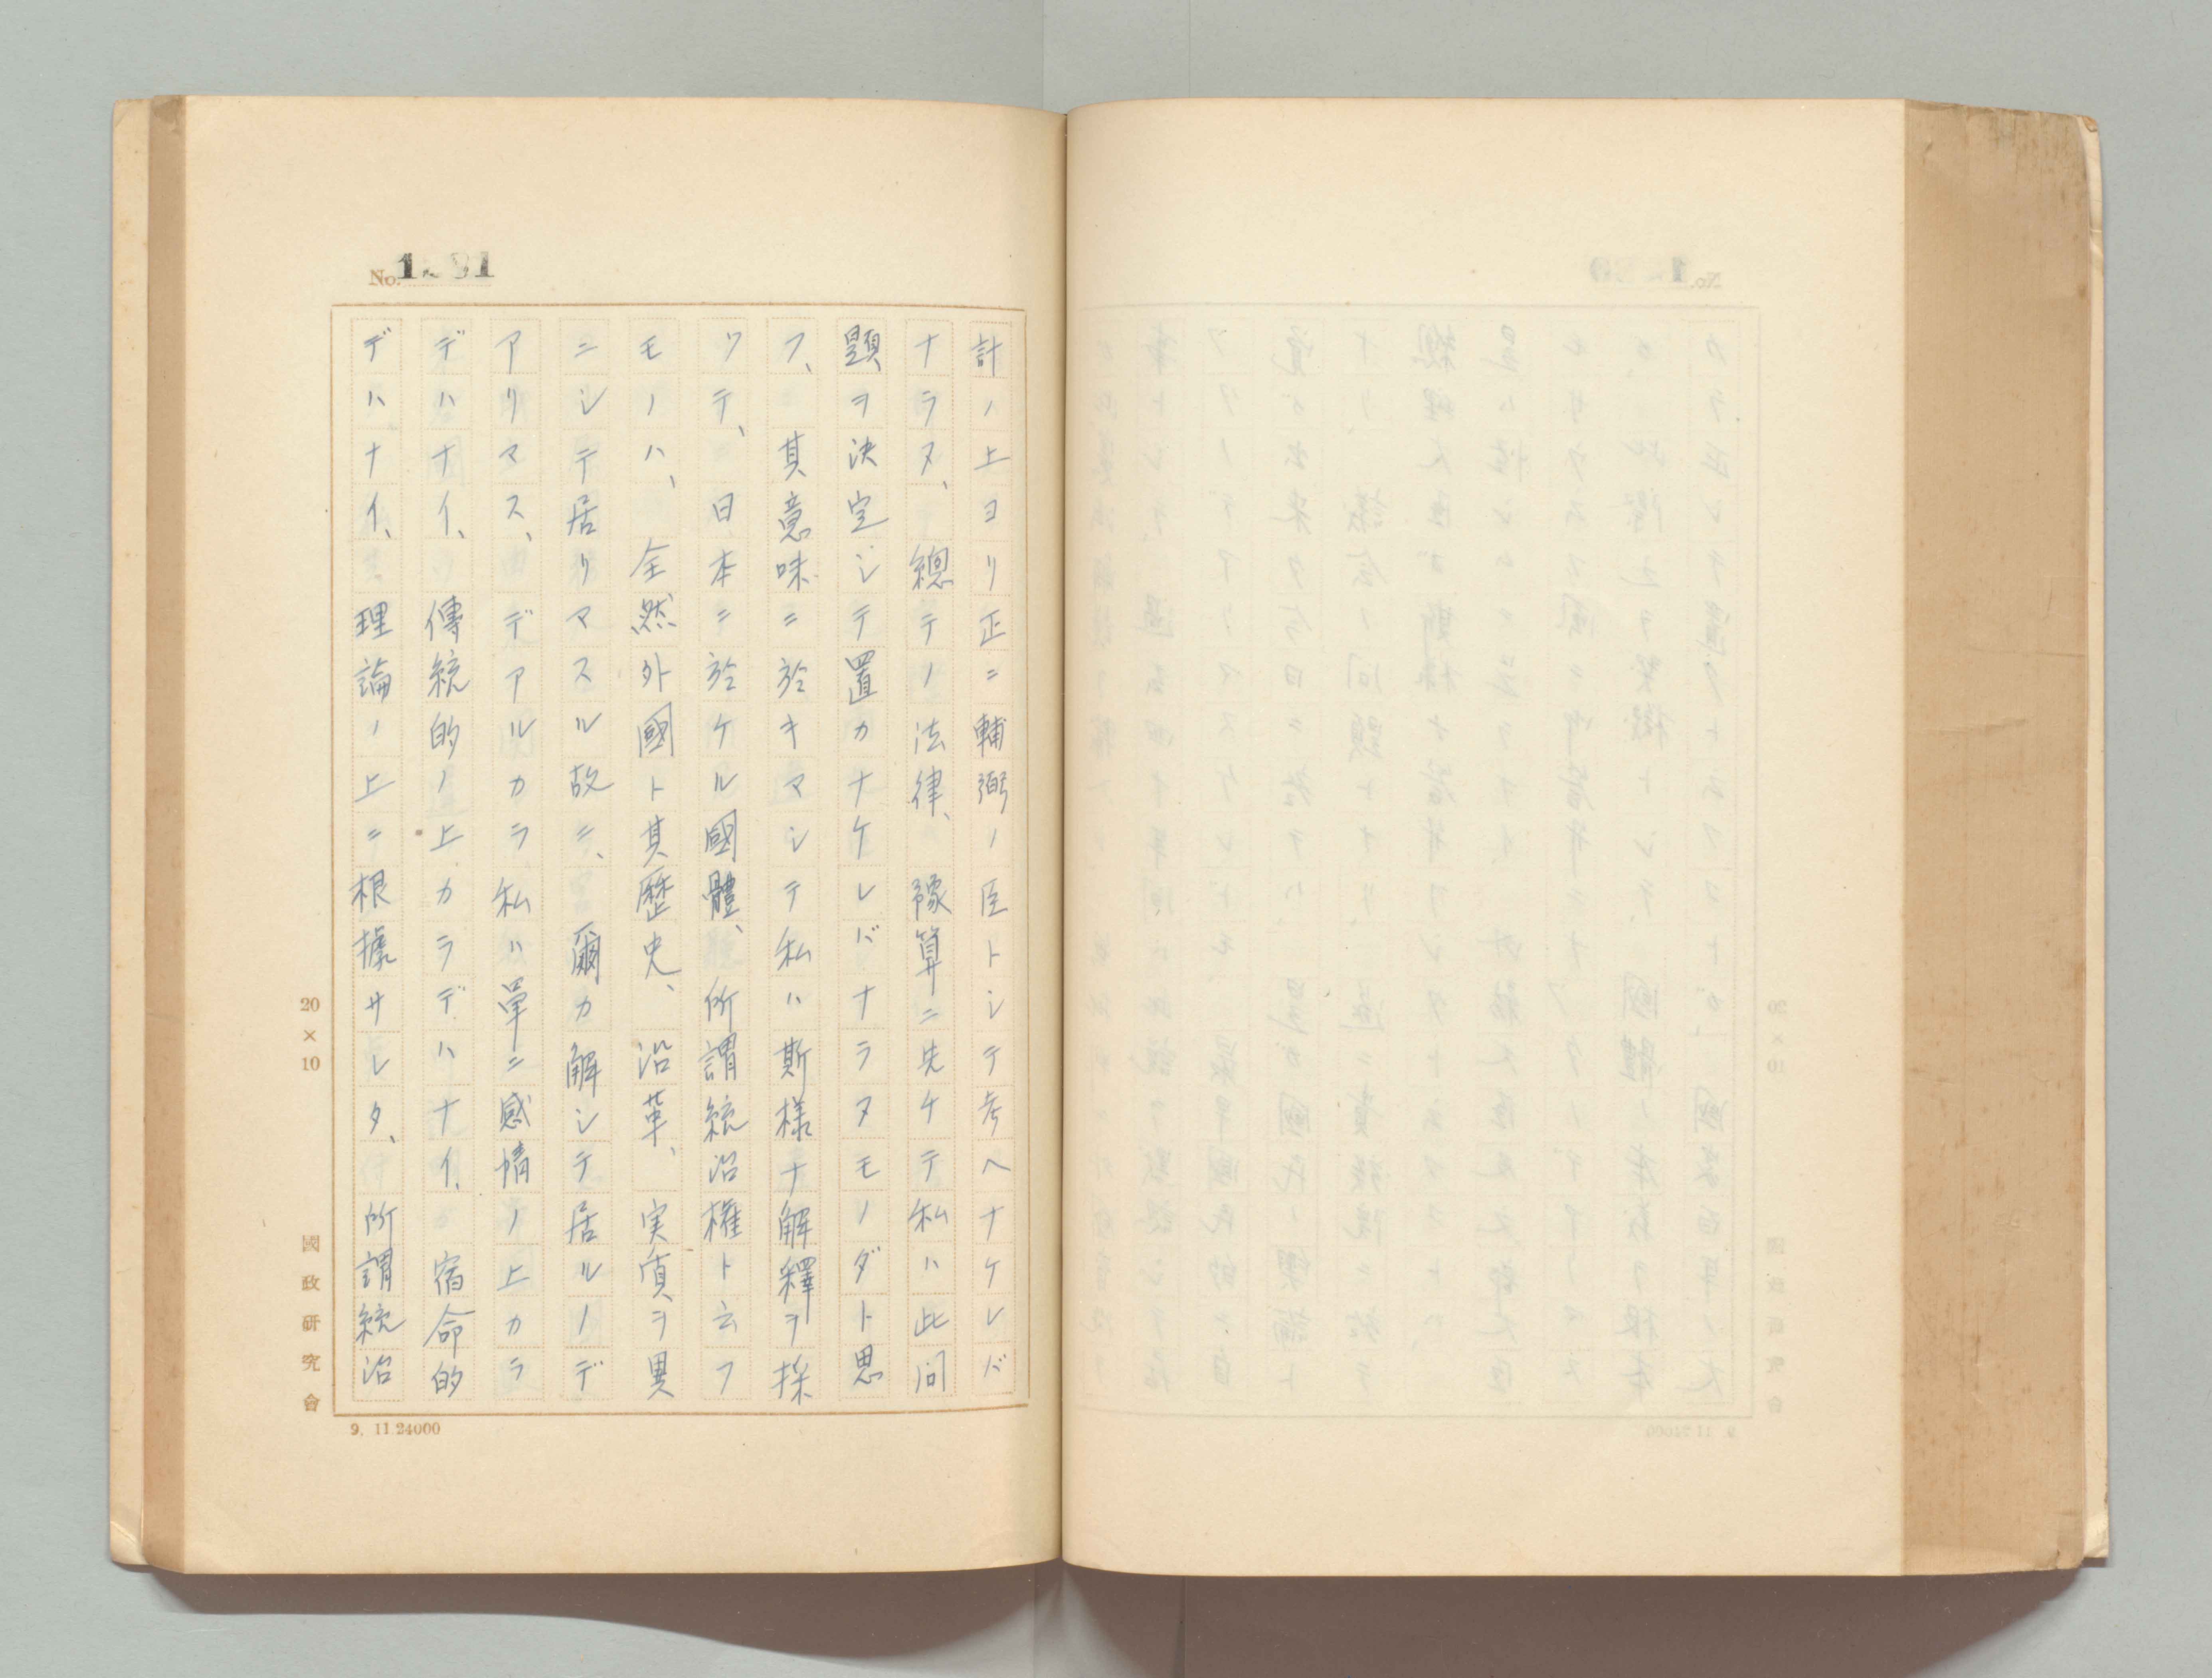 計ノ上ヨリ正ニ輔弼ノ臣トシテ考ヘナケレバ
ナラヌ、總テノ法律、豫算ニ先ケテ私ハ此問
題ヲ決定シテ置カナケレバナラヌモノダト思
フ、其意味ニ於キマシテ私ハ斯樣ナ解釋ヲ採
ツテ、日本ニ於ケル國體、所謂統治權ト云フ
モノハ、全然外國ト其歷史、沿革、実質ヲ異
ニシテ居リマスル故ニ、爾カ解シテ居ルノデ
アリマス、デアルカラ私ハ單ニ感情ノ上カラ
デハナイ、傳統的ノ上カラデハナイ、宿命的
デハナイ、理論ノ上ニ根據サレタ、所謂統治
No.
20×10
國政研究會
9. 11.24000